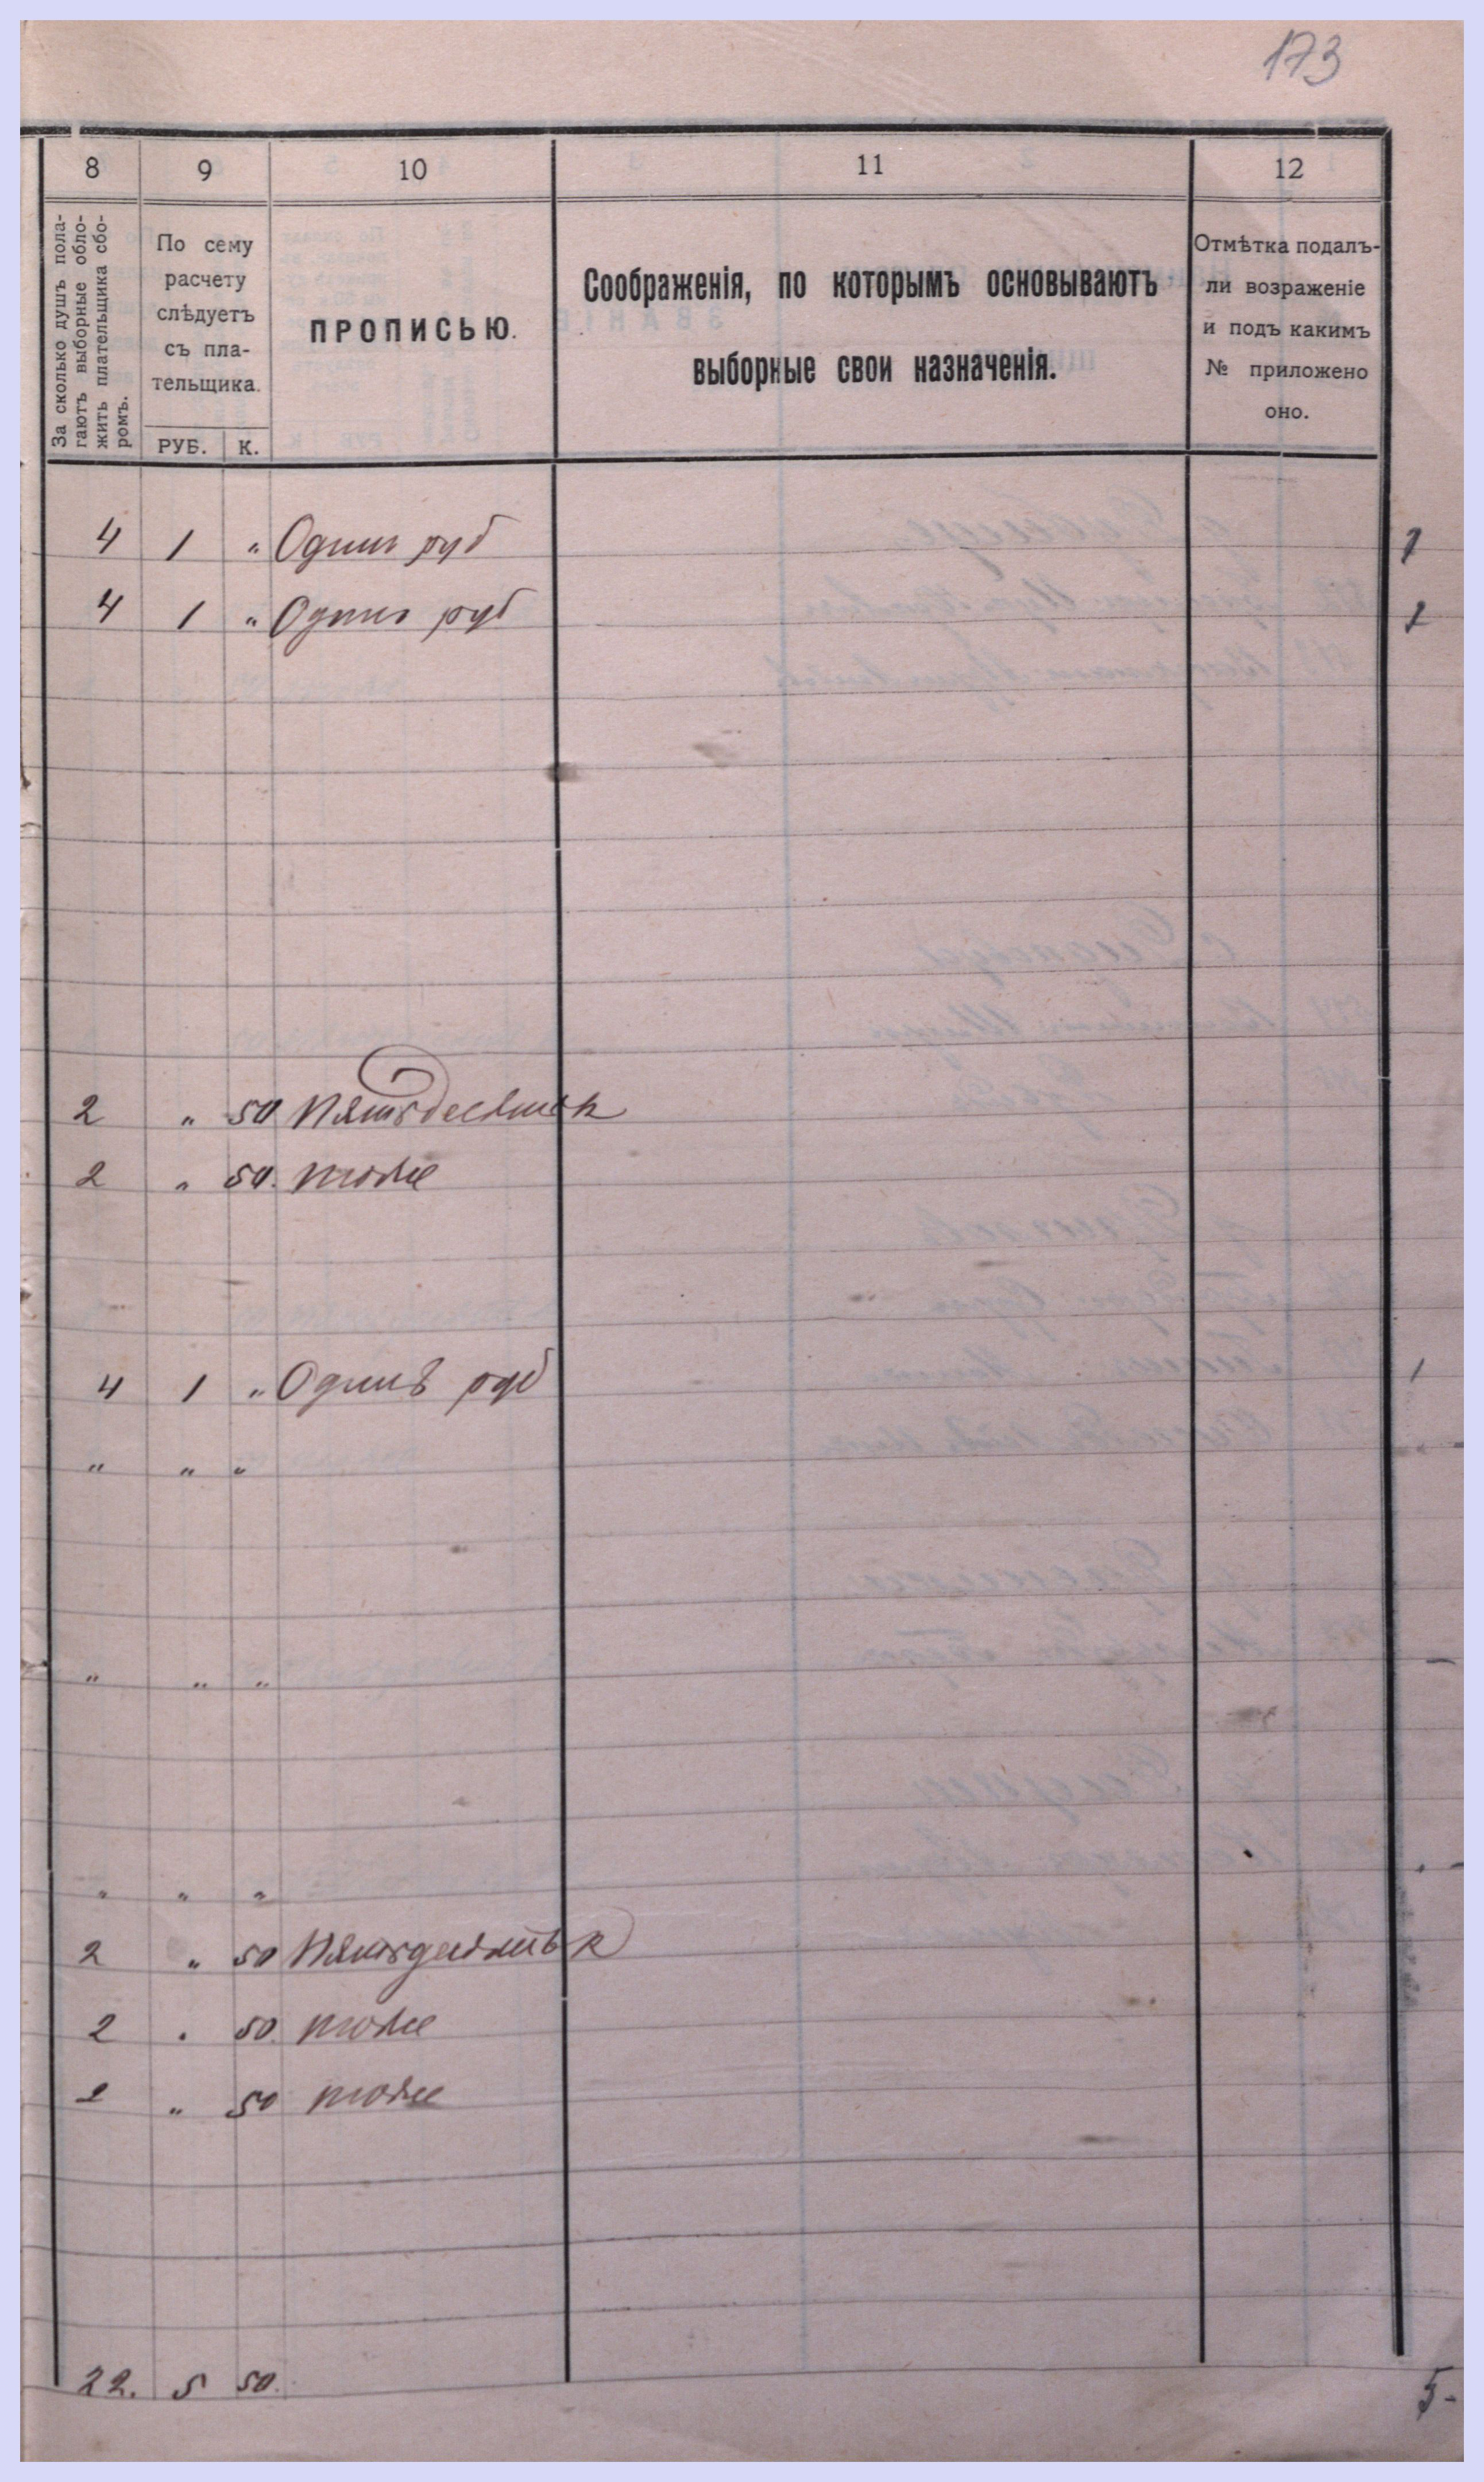 173
8 9 10 11 12
За сколько душъ пола-
гаютъ выборные обло-
жить плательщика сбо-
ромъ.
По сему
расчету
слѣдуетъ
съ пла-
тельщика.
РУБ. К.
ПРОПИСЬЮ.
Соображенія, по которымъ основываютъ
выборные свои назначенія.
Отмѣтка подалъ-
ли возраженіе
и подъ какимъ
№ приложено
оно.
4 1 " Одинъ руб 1
4 1 " Одинъ руб 1
2 " 50 Пятьдесятъ к
2 " 50. тоже
4 1 " Одинъ руб 1
" " "
" " " –
" " " –
2 " 50 Пятьдесятъ к
2 " 50 тоже
2 " 50 тоже
22. 5 50. 5-